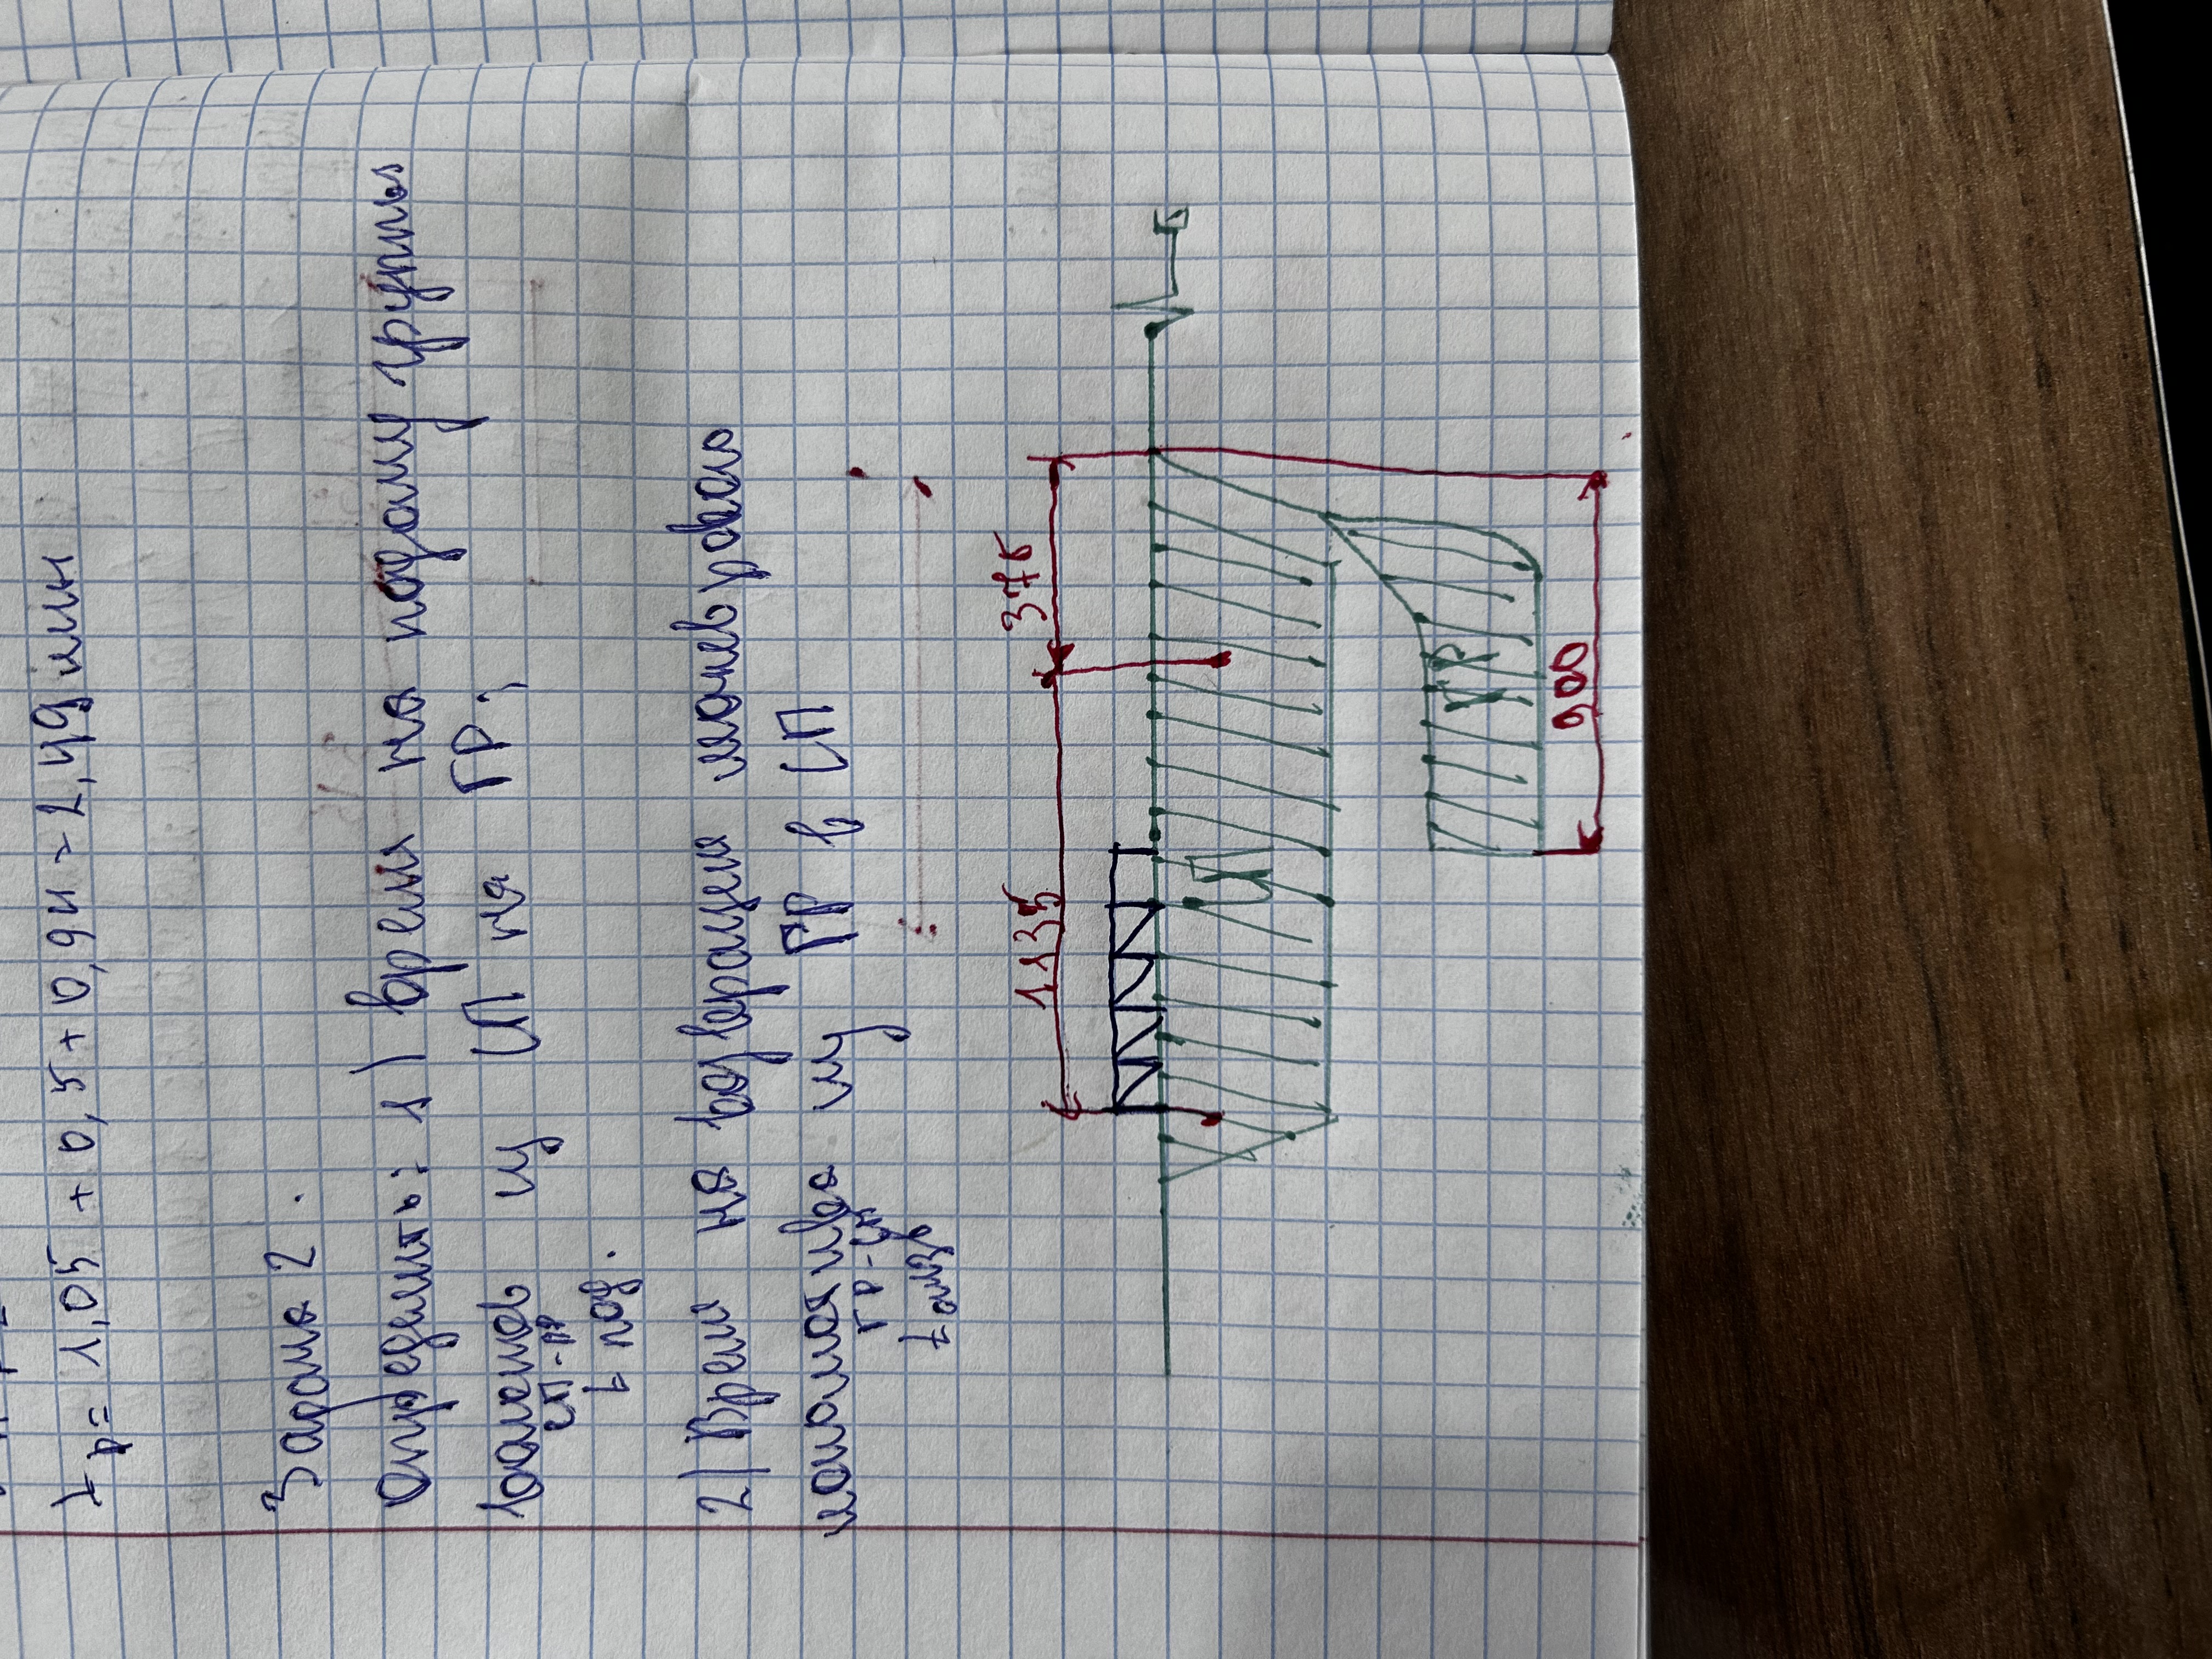 tр = 1,05 + 0,5 + 0,94 = 2,49 мин
Задача 2.
Определить: 1) время на подачу группы
вагонов из СП на ГР;
СП-ГР
t под.
2) Время на возвращен маневрового
локомотива из ГР в СП
ГР-СП
t
376
1135
СП
ГР
900